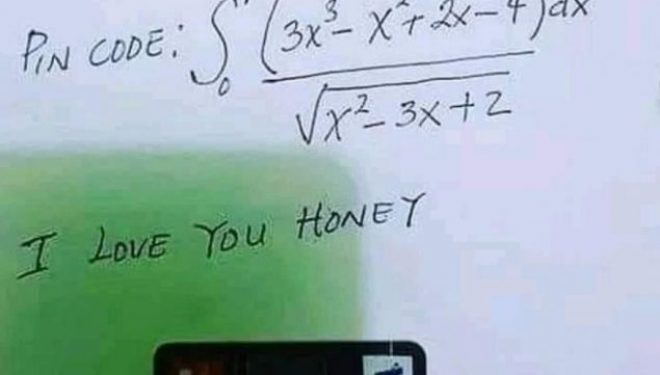 PIN CODE: ∫₀ (3x³ - x² + 2x - 4)dx
√x² - 3x + 2
I LOVE YOU HONEY